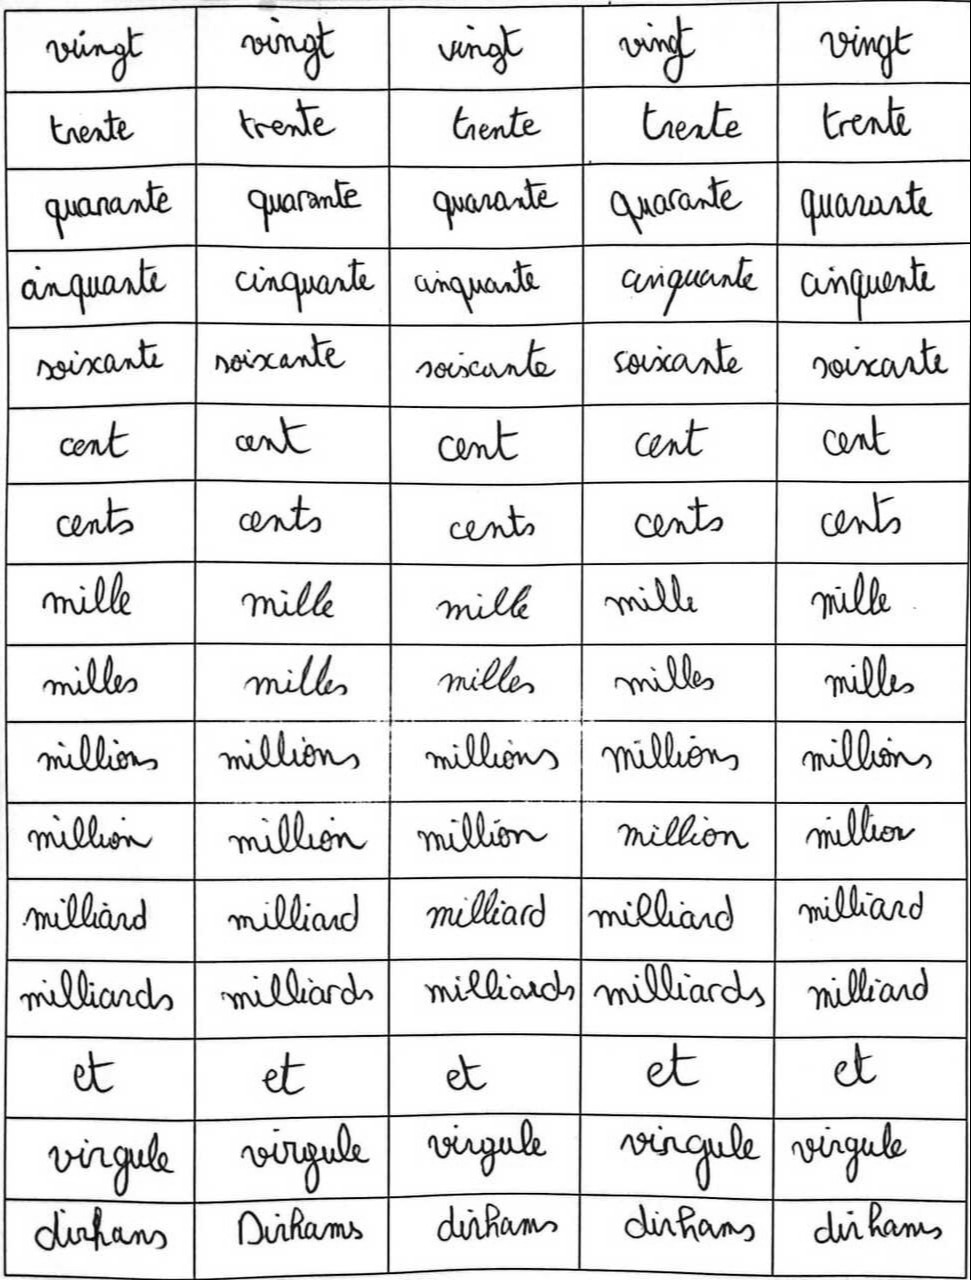 vingt vingt vingt vingt vingt
trente trente trente trente trente
quarante quarante quarante quarante quarante
cinquante cinquante cinquante cinquante cinquente
soixante soixante soixante soixante soixante
cent cent cent cent cent
cents cents cents cents cents
mille mille mille mille mille
milles milles milles milles milles
millions millions millions millions millions
million million million million million
milliard milliard milliard milliard milliard
milliards milliards milliards milliards milliard
et et et et et
virgule virgule virgule virgule virgule
dirhams Dirhams dirhams dirhams dirhams